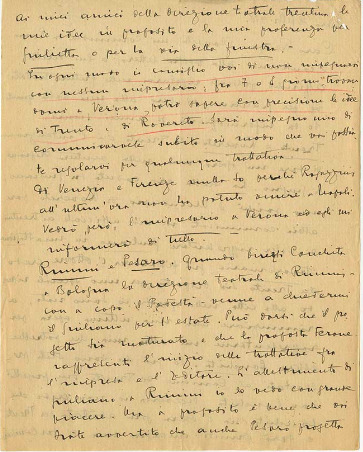 ai miei amici della direzione teatrale trentina le
mie idee in proposito e la mia preferenza per
Giulietta o per la via della finestra.-
In ogni modo io consiglio voi di non impegnarvi
con nessun impresario; fra 7 o 8 giorni trovan
domi a Verona potrò sapere con precisione le idee
di Trento e di Rovereto. Sarà mio impegno di
comunicarvele subito in modo che voi possia
te regolarvi per qualunque trattativa.
Di Venezia e Firenze nulla so perchè
all'ultim'ora non ha potuto venire a Napoli.
Vedrò però, l'impresario a Verona ed egli mi
informerà di tutto.
Rimini e Pesaro. Quando diressi Conchita
a Bologna la direzione teatrale di Rimini -
con a capo il Podestà - venne a chiedermi
il Giuliano per l'estate. Può darsi che il pro
getto sia maturato e che la proposta
rappresenti l'inizio delle trattative fra
l'impresa e l'Editore. L'allestimento di
Giuliano a Rimini io lo vedo con grande
piacere. Ma a proposito è bene che voi
siate avvertito che anche Pesaro progetta